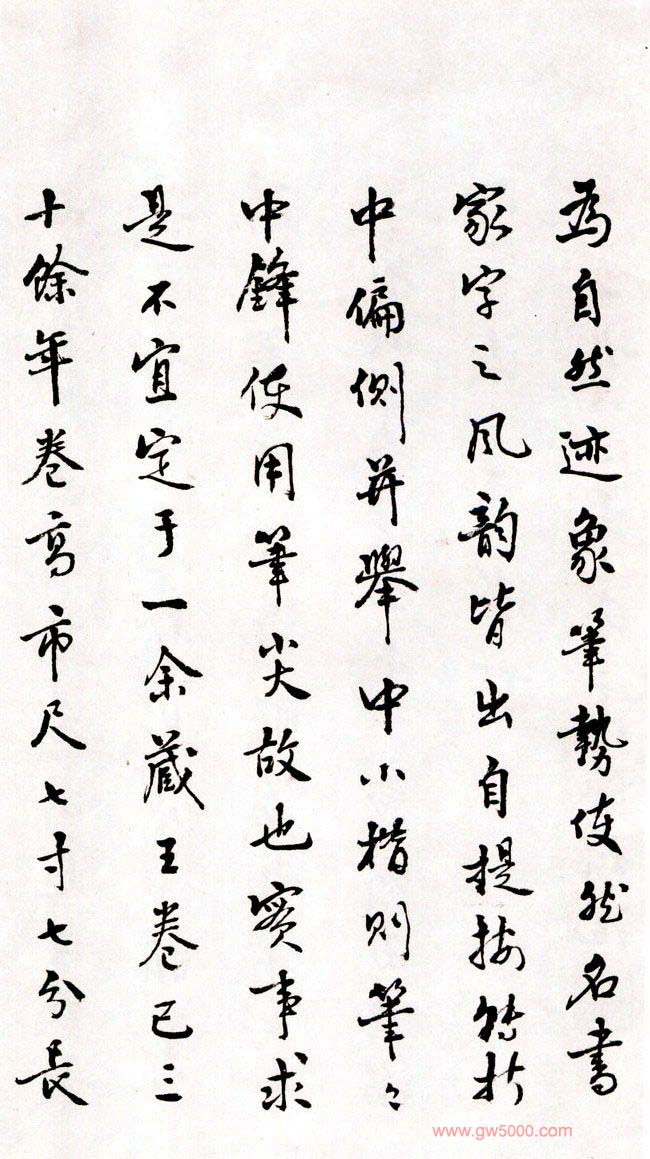 為自然迹象筆勢使然名書
家字之風韵皆出自提按轉折
中偏側并舉中小楷則筆々
中鋒使用筆尖故也實事求
是不宜定于一余藏王卷已三
十餘年卷高市尺七寸七分長
www.gw5000.com